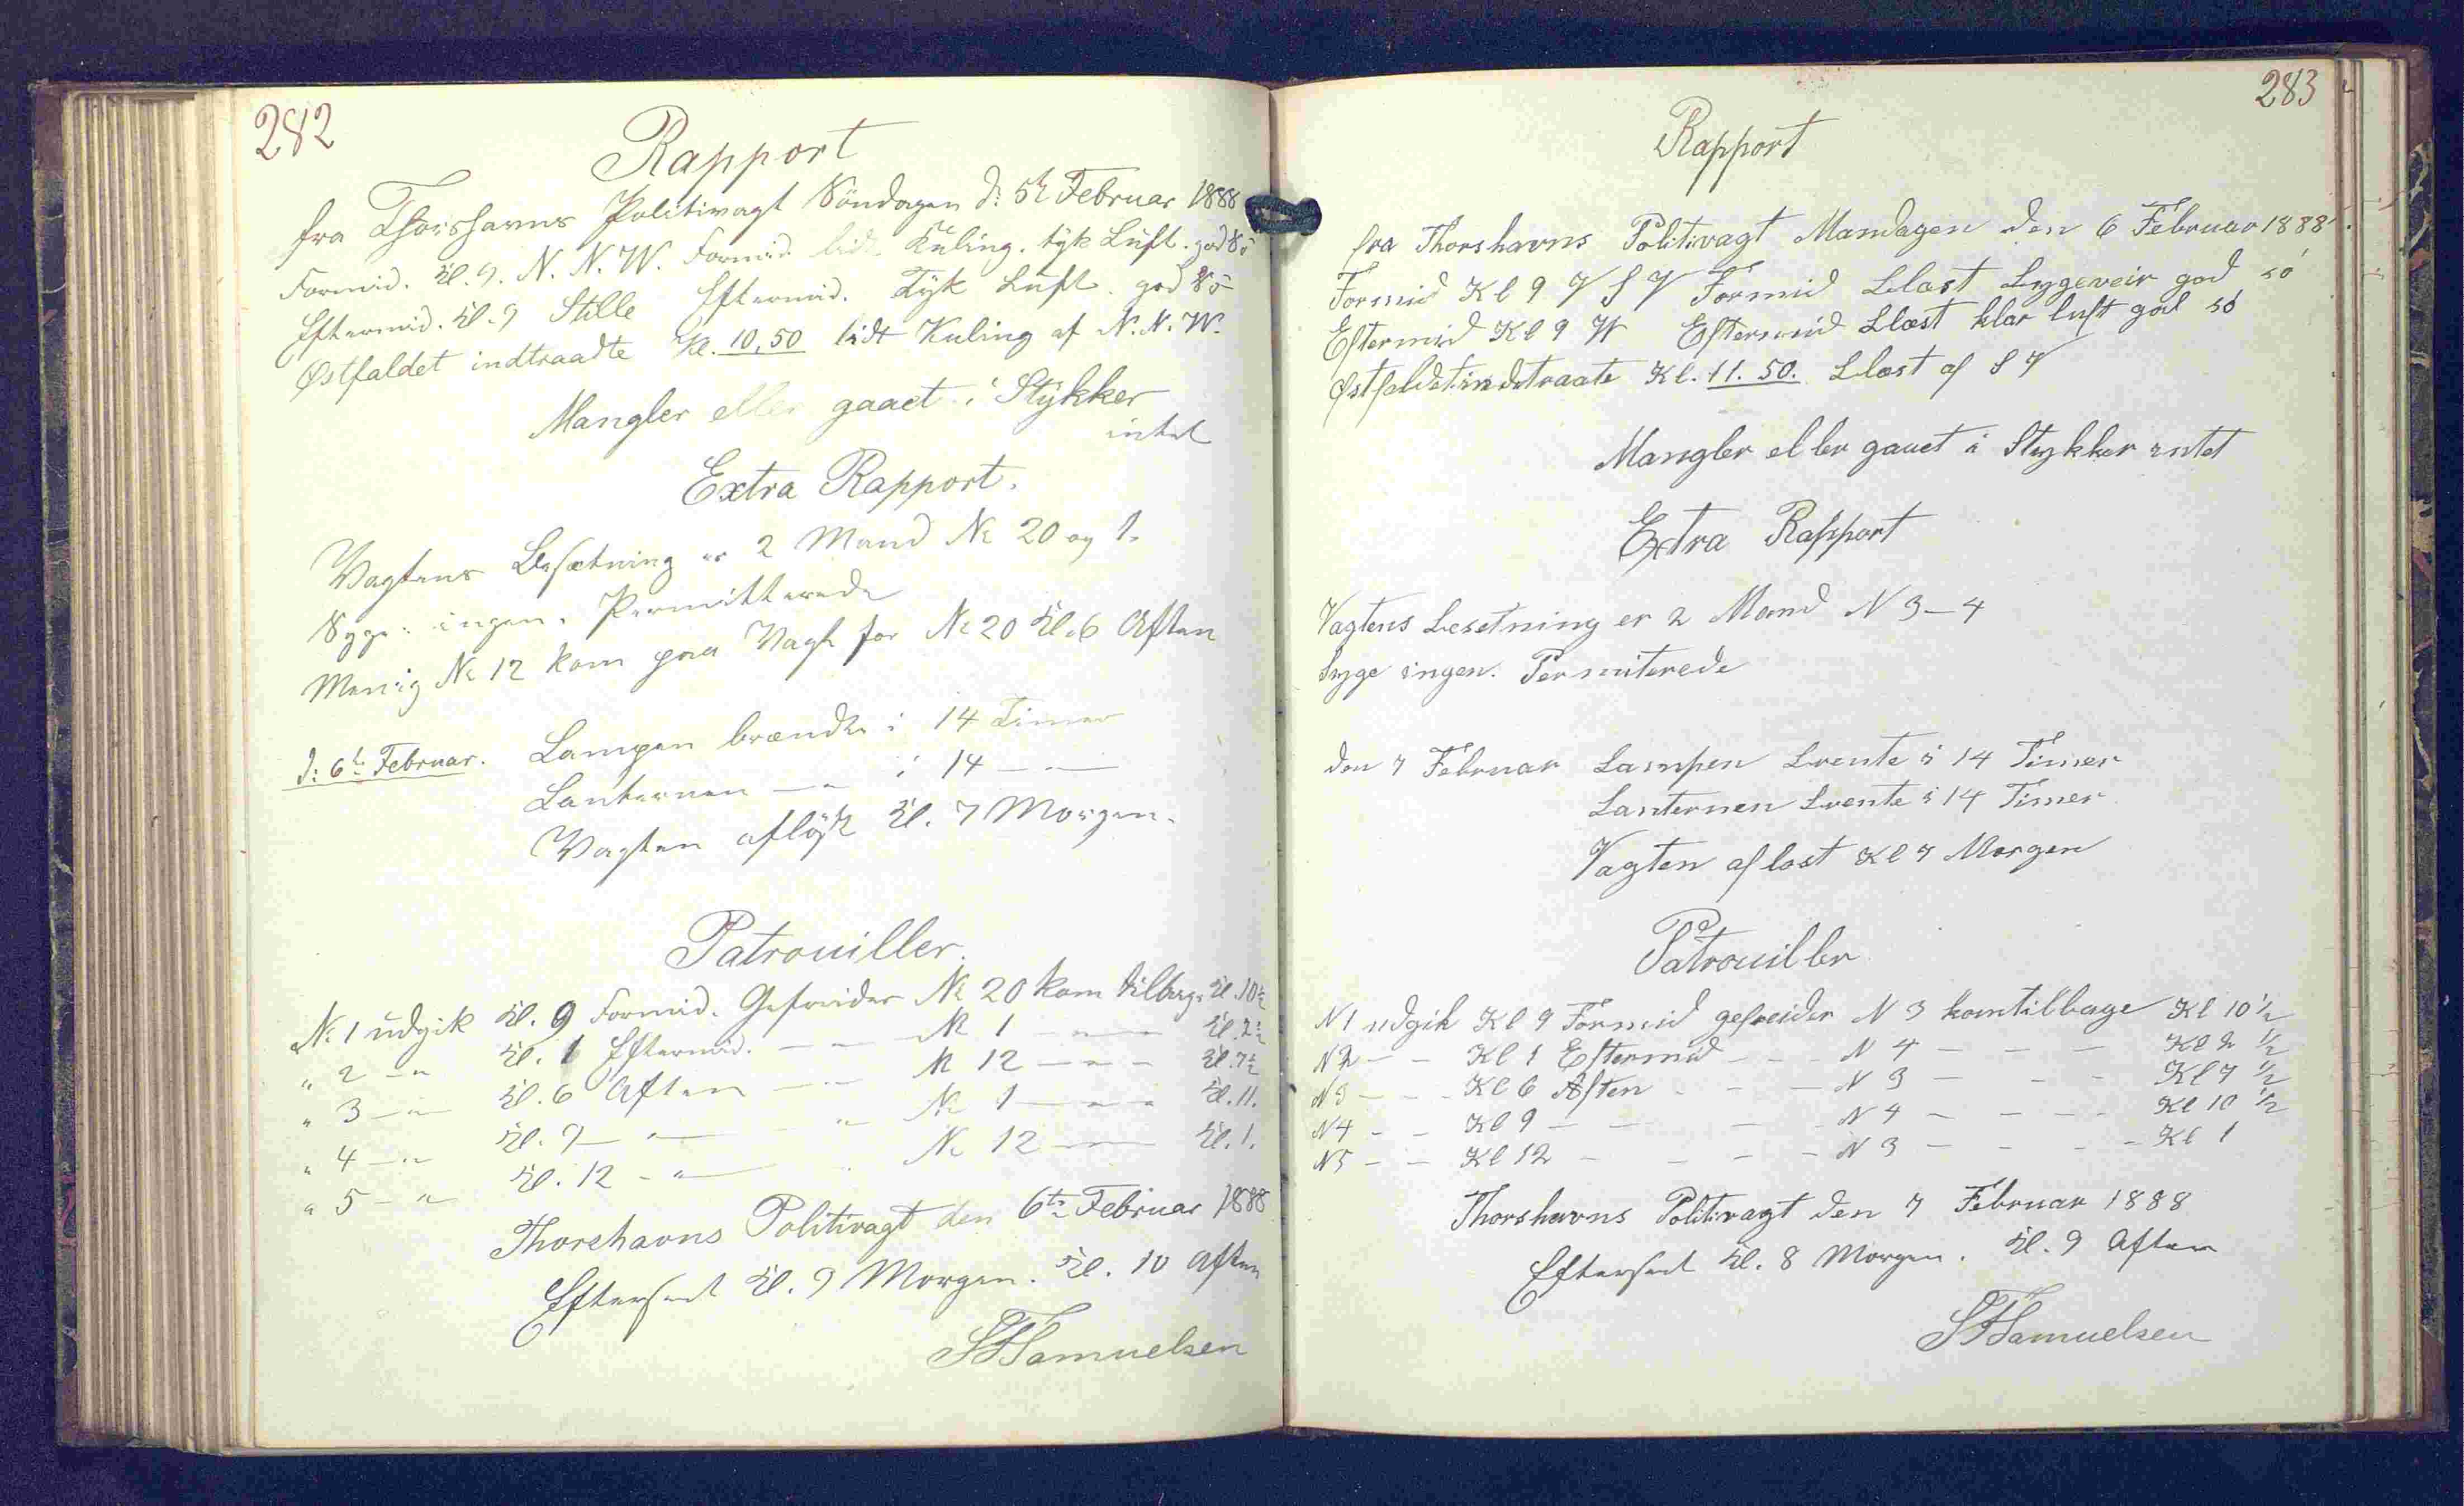 282
Rapport
fra Thorshavns Politivagt Söndagen d: 5te Februar 1888
Formid. Kl. 9. N. N. W. Formid. lidt Kuling. tyk Luft. god Sö
Eftermid. Kl. 9 Stille Eftermid. Tyk Luft. god Sö
Østfaldet indtraadte Kl. 10,50 lidt Kuling af N. N. W.
Mangler eller gaaet i Stykker
intet
Extra Rapport.
Vagtens Besætning er 2 Mand No 20 og 1.
Syge: ingen. Permitterede
Menig No 12 kom paa Vagt for No 20 Kl. 6 Aften
d: 6te Februar. Lampen brændte i 14 Timer
Lanternen — " i 14 — —
Vagten aflöst Kl. 7 Morgen.
Patrouiller.
No 1 udgik Kl. 9 Formid. Gefreider No 20 kom tilbage Kl. 10½
" 2 — " Kl. 1 Eftermid. — " — No 1 — " — Kl. 2½
" 3 — " — Kl. 6 Aften — " — No 12 — " — Kl. 7½
" 4 — " Kl. 9 — " — " No 1 — " — Kl. 11.
" 5 — " Kl. 12 — " — " No 12 — " — Kl. 1.
Thorshavns Politivagt den 6te Februar 1888
Efterseet Kl. 9 Morgen. Kl. 10 Aften
SFSamuelsen
283
Rapport
fra Thorshavns Politivagt Mandagen den 6 Februar 1888.
Formid Kl 9 V S V Formid Blæst Bygeveir god sö
Eftermid Kl 9 W Eftermid Blæst klar luft god sö
Østfaldet indetraate Kl. 11. 50. Blæst af S V
Mangler eller gaaet i Stykker intet
Extra Rapport
Vagtens besetning er 2 Mand N 3 – 4
Syge ingen. Permiterede
den 7 Februar Lampen brente i 14 Timer
Lanternen brente i 14 Timer
Vagten aflost Kl 7 Morgen
Patrouiller
N 1 udgik Kl 9 Formid gefreider N 3 kom tilbage Kl 10 ½
N 2 — — Kl 1 Eftermid — — N 4 — — — Kl 2 ½
N 3 — — Kl 6 Aften — — — N 3 — — — Kl 7 ½
N 4 — — Kl 9 — — — — N 4 — — — Kl 10 ½
N 5 — — Kl 12 — — — — N 3 — — — Kl 1
Thorshavns Politivagt den 7 Februar 1888
Efterseet Kl. 8 Morgen. Kl. 9 Aften
SFSamuelsen